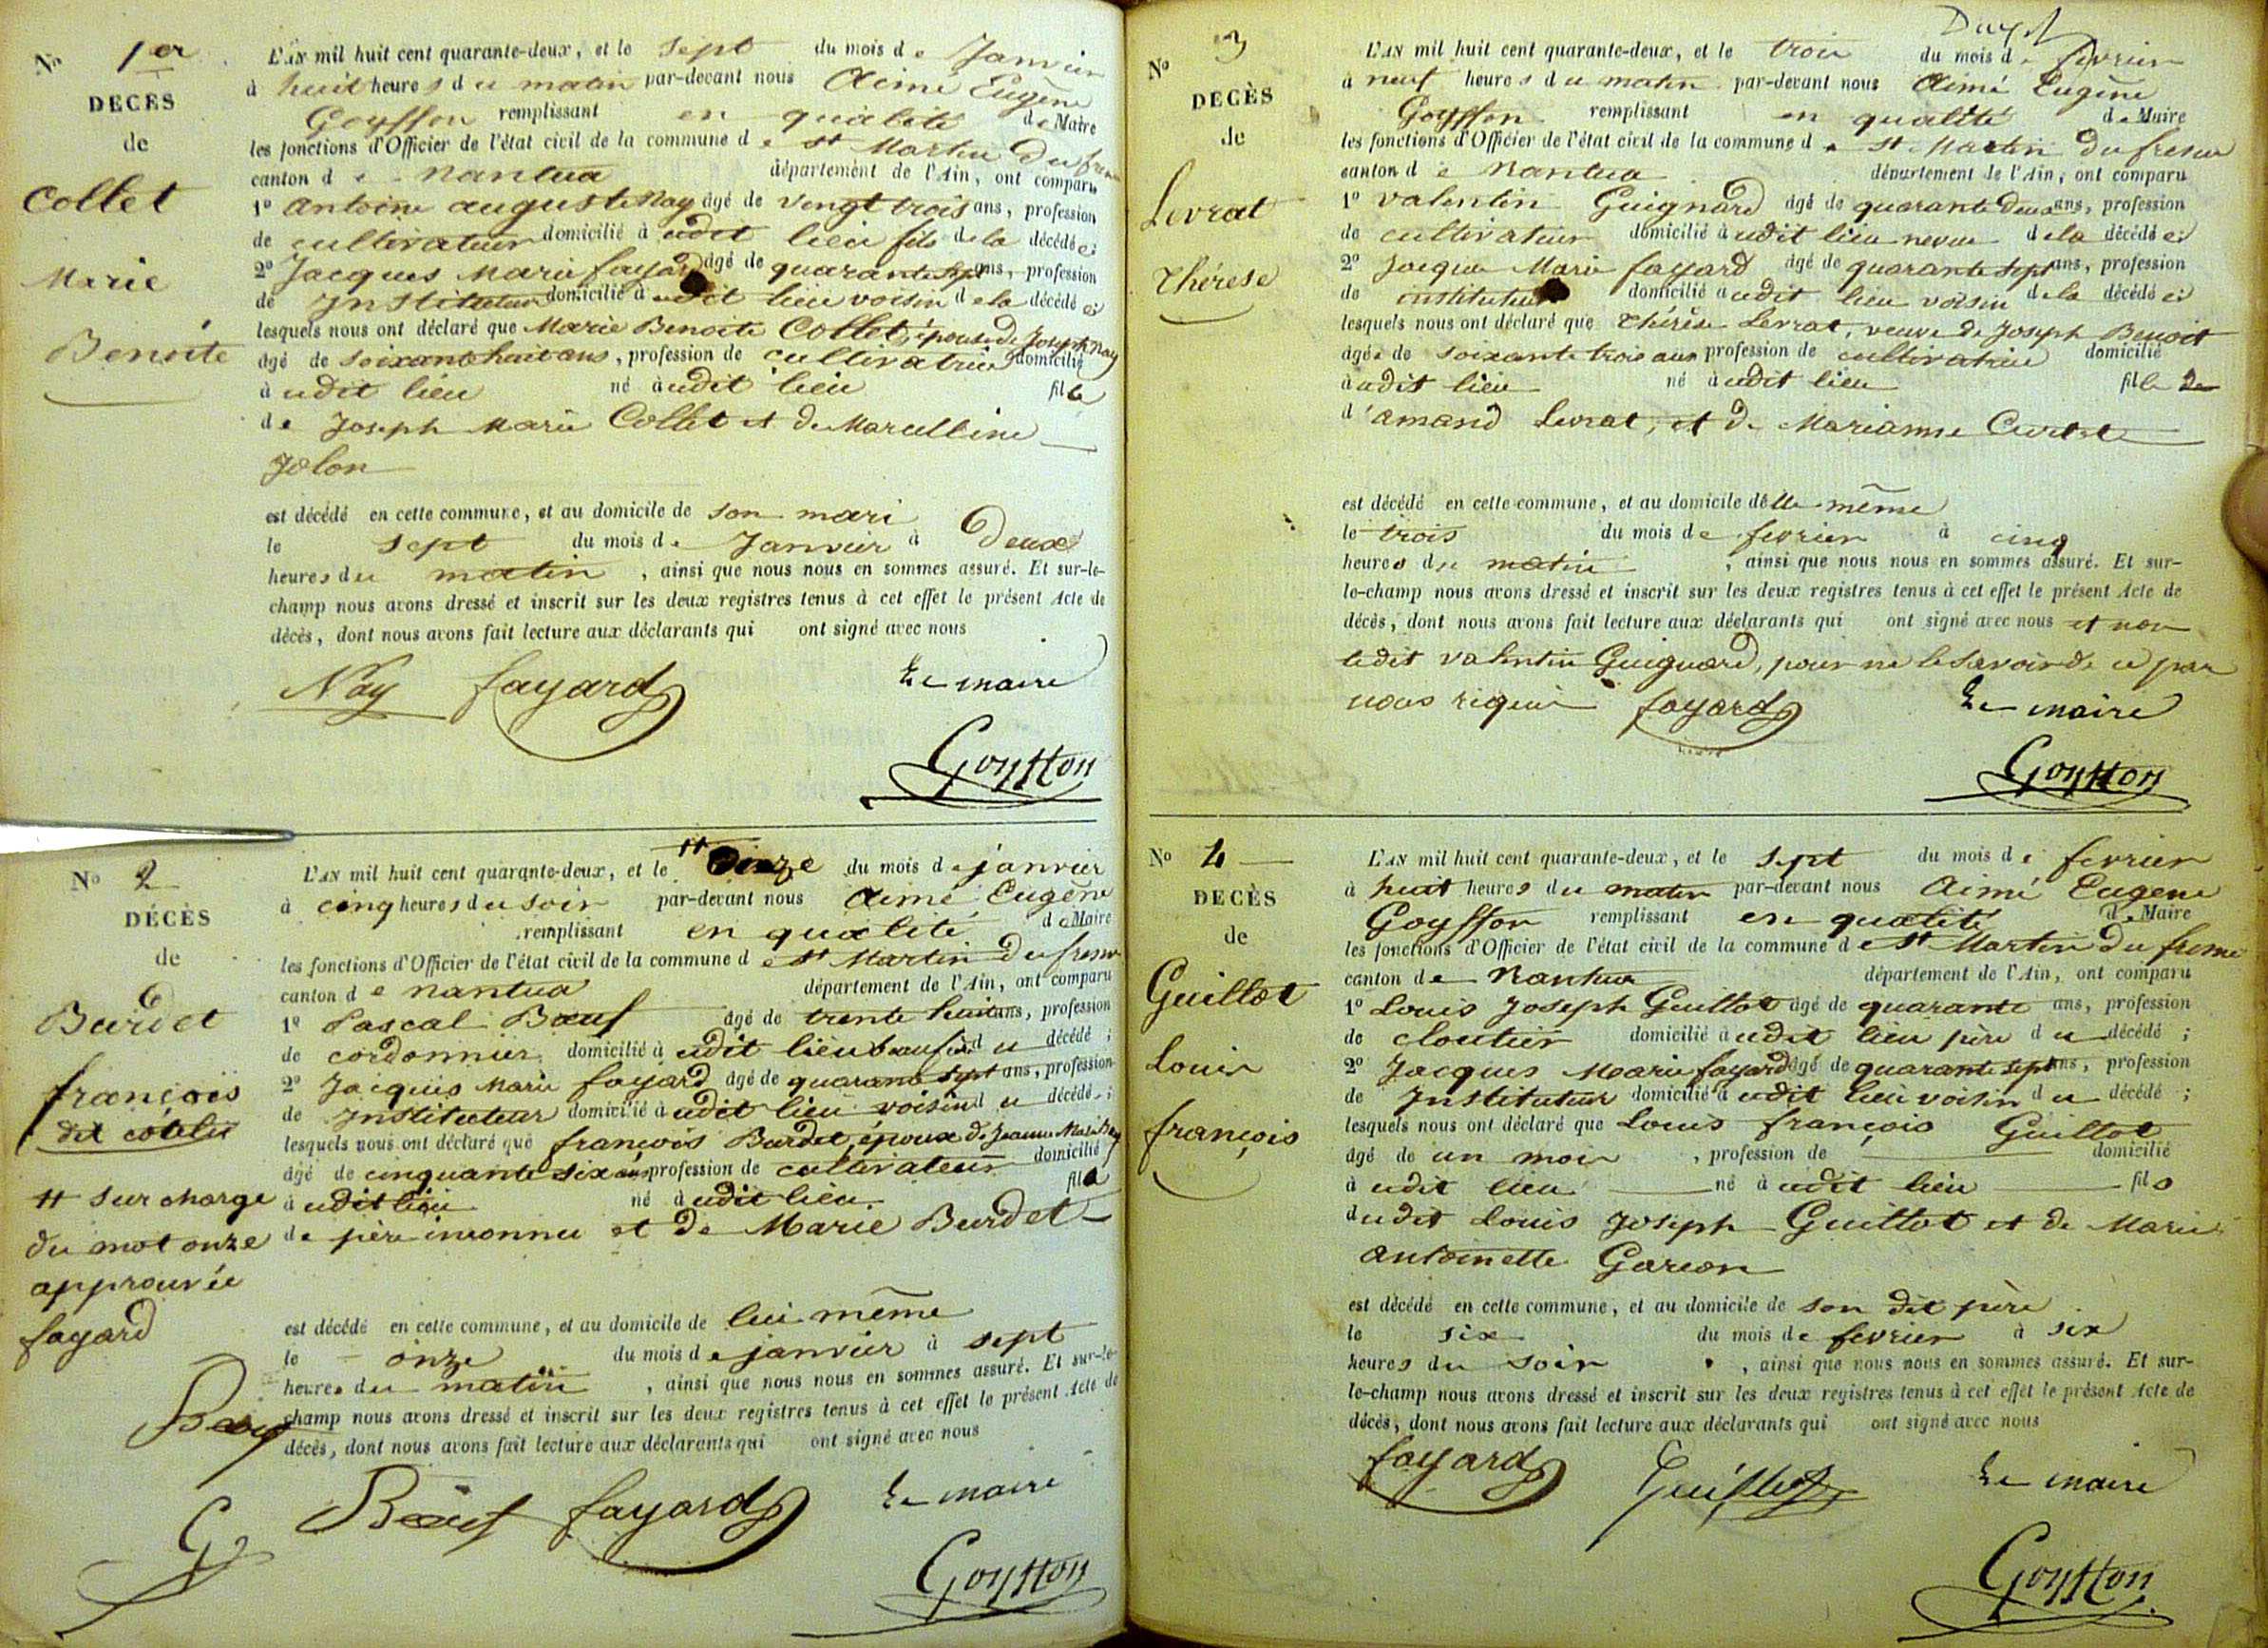 N° 1er
DECÈS
de
Collet
Marie
Benoite
L'AN mil huit cent quarante-deux, et le sept du mois de Janvier
à huit heures du matin par-devant nous Aimé Eugène
Goyffon remplissant en qualité de Maire
les fonctions d'Officier de l'état civil de la commune de st Martin Du fresne
canton de Nantua département de l'Ain, ont comparu
1° Antoine auguste Nay âgé de vingt trois ans, profession
de cultivateur domicilié à udit lieu fils de la décédée;
2° Jacques Marie fayard âgé de quarante sept ans, profession
de Instituteur domicilié à udit lieu voisin de la décédée;
lesquels nous ont déclaré que Marie Benoite Collet, épouse de Joseph Nay
âgé de soixante huit ans, profession de cultivatrice domicilié
à udit lieu né à udit lieu fille
de Joseph Marie Collet et de Marcelline
Jolon
est décédé en cette commune, et au domicile de son mari
le sept du mois de Janvier à Deux
heures du matin, ainsi que nous nous en sommes assuré. Et sur-le-
champ nous avons dressé et inscrit sur les deux registres tenus à cet effet le présent Acte de
décès, dont nous avons fait lecture aux déclarants qui ont signé avec nous
Nay fayard Le maire
Goyffon
N° 2
DÉCÈS
de
Burdet
françois
dit
# surcharge
du mot onze
approuvée
fayard
Bœuf
G
L'AN mil huit cent quarante-deux, et le # onze du mois de janvier
à cinq heures du soir par-devant nous Aimé Eugène
remplissant en qualité de Maire
les fonctions d'Officier de l'état civil de la commune de st Martin Du fresne
canton de nantua département de l'Ain, ont comparu
1° Pascal Bœuf âgé de trente huit ans, profession
de cordonnier domicilié à udit lieu beaufrère du décédé;
2° Jacques Marie fayard âgé de quarante sept ans, profession
de Instituteur domicilié à udit lieu voisin du décédé;
lesquels nous ont déclaré que françois Burdet, époux de Jeanne Marie
âgé de cinquante six ans, profession de cultivateur domicilié
à udit lieu né à udit lieu fils
de père inconnu et de Marie Burdet
est décédé en cette commune, et au domicile de lui même
le onze du mois de janvier à sept
heures du matin, ainsi que nous nous en sommes assuré. Et sur-le-
champ nous avons dressé et inscrit sur les deux registres tenus à cet effet le présent Acte de
décès, dont nous avons fait lecture aux déclarants qui ont signé avec nous
Bœuf fayard Le maire
Goyffon
N° 3
DECÈS
de
Levrat
Thérèse
L'AN mil huit cent quarante-deux, et le trois du mois de fevrier
à neuf heures du matin par-devant nous Aimé Eugène
Goyffon remplissant en qualité de Maire
les fonctions d'Officier de l'état civil de la commune de st Martin Du fresne
canton de Nantua département de l'Ain, ont comparu
1° Valentin Guignard âgé de quarante Deux ans, profession
de cultivateur domicilié à udit lieu neveu de la décédée;
2° Jacque Marie fayard âgé de quarante sept ans, profession
de instituteur domicilié à udit lieu voisin de la décédée;
lesquels nous ont déclaré que Thérèse Levrat, veuve de Joseph Benoit
âgée de soixante trois ans profession de cultivatrice domicilié
à udit lieu né à udit lieu fille De
d'amand Levrat, et de Marianne Curtet
est décédé en cette commune, et au domicile d'elle même
le trois du mois de fevrier à cinq
heures du matin, ainsi que nous nous en sommes assuré. Et sur-
le-champ nous avons dressé et inscrit sur les deux registres tenus à cet effet le présent Acte de
décès, dont nous avons fait lecture aux déclarants qui ont signé avec nous et non
ledit Valentin Guignard, pour ne le savoir de ce par
nous requis fayard Le maire
Goyffon
N° 4
DECÈS
de
Guillot
Louis
françois
L'AN mil huit cent quarante-deux, et le sept du mois de fevrier
à huit heures du matin par-devant nous Aimé Eugene
Goyffon remplissant en qualité de Maire
les fonctions d'Officier de l'état civil de la commune de st Martin Du fresne
canton de Nantua département de l'Ain, ont comparu
1° Louis Joseph Guillot âgé de quarante ans, profession
de cloutier domicilié à udit lieu père du décédé;
2° Jacques Marie fayard âgé de quarante sept ans, profession
de Instituteur domicilié à udit lieu voisin du décédé;
lesquels nous ont déclaré que Louis françois Guillot
âgé de un mois, profession de domicilié
à udit lieu né à udit lieu fils
dudit Louis Joseph Guillot et de Marie
antoinette Garcon
est décédé en cette commune, et au domicile de son dit père
le six du mois de fevrier à six
heures du soir, ainsi que nous nous en sommes assuré. Et sur-
le-champ nous avons dressé et inscrit sur les deux registres tenus à cet effet le présent Acte de
décès, dont nous avons fait lecture aux déclarants qui ont signé avec nous
fayard Guillot Le maire
Goyffon